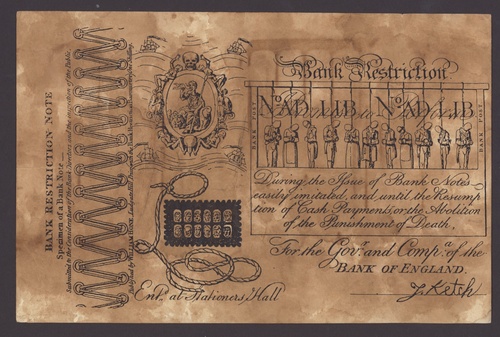 BANK RESTRICTION NOTE
Specimen of a Bank Note
Bank Restriction
No. AD LIB No. AD LIB
BANK POST
BANK POST
During the Issue of Bank Notes
easily imitated, and until the Resump
tion of Cash Payments, or the Abolition
of the Punishment of Death,
For the Govr. and Compa. of the
BANK OF ENGLAND.
J. Ketch
Entd. at Stationers Hall